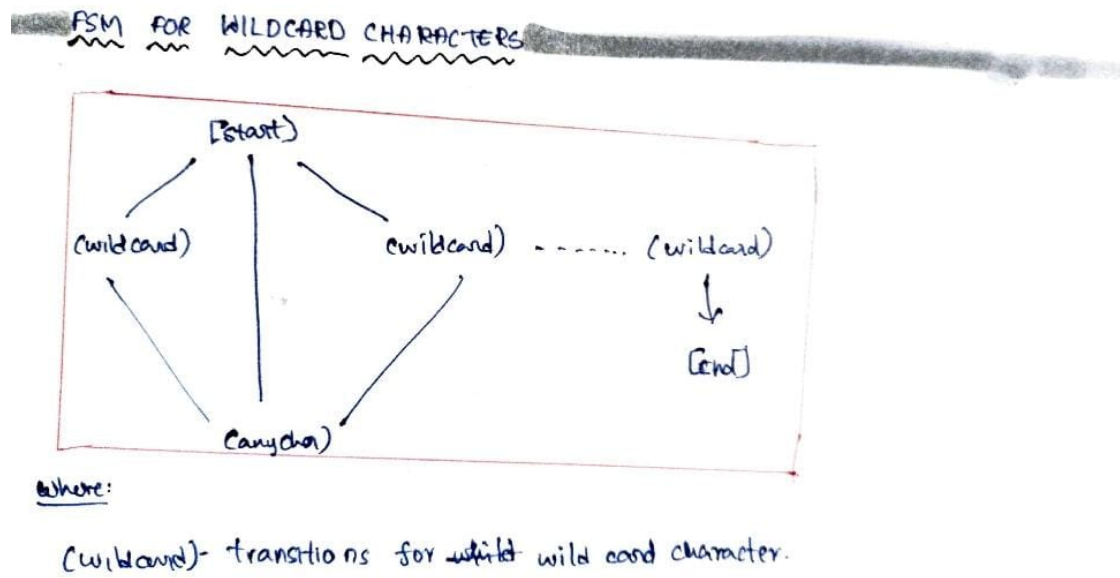 FSM FOR WILDCARD CHARACTERS
[start)
(wildcard) (wildcard) ------- (wildcard)
[end]
(anychar)
where:
(wildcard)- transitions for whild wild card character.